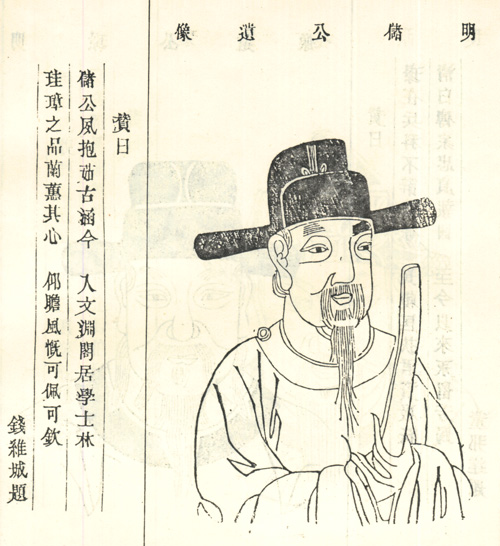 明儲公遺像
贊曰
儲公夙抱茹古涵今 入文淵閣居學士林
珪璋之品南薰其心 仰瞻風慨可佩可欽
錢維城題